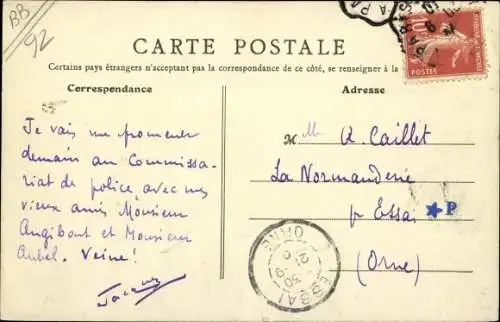 BB
92
CARTE POSTALE
Certains pays étrangers n'acceptant pas la correspondance de ce côté, se renseigner à la
Correspondance
Adresse
Je vais me promener
demain au Commissa-
riat de police avec mes
vieux amis Monsieur
Angibout et Monsieur
Aubel. Veine!
Jacques
M Mr R. Caillet
La Normanderie
pr Essai
P
(Orne)
POSTES
10
ESSAI
ORNE
30-9